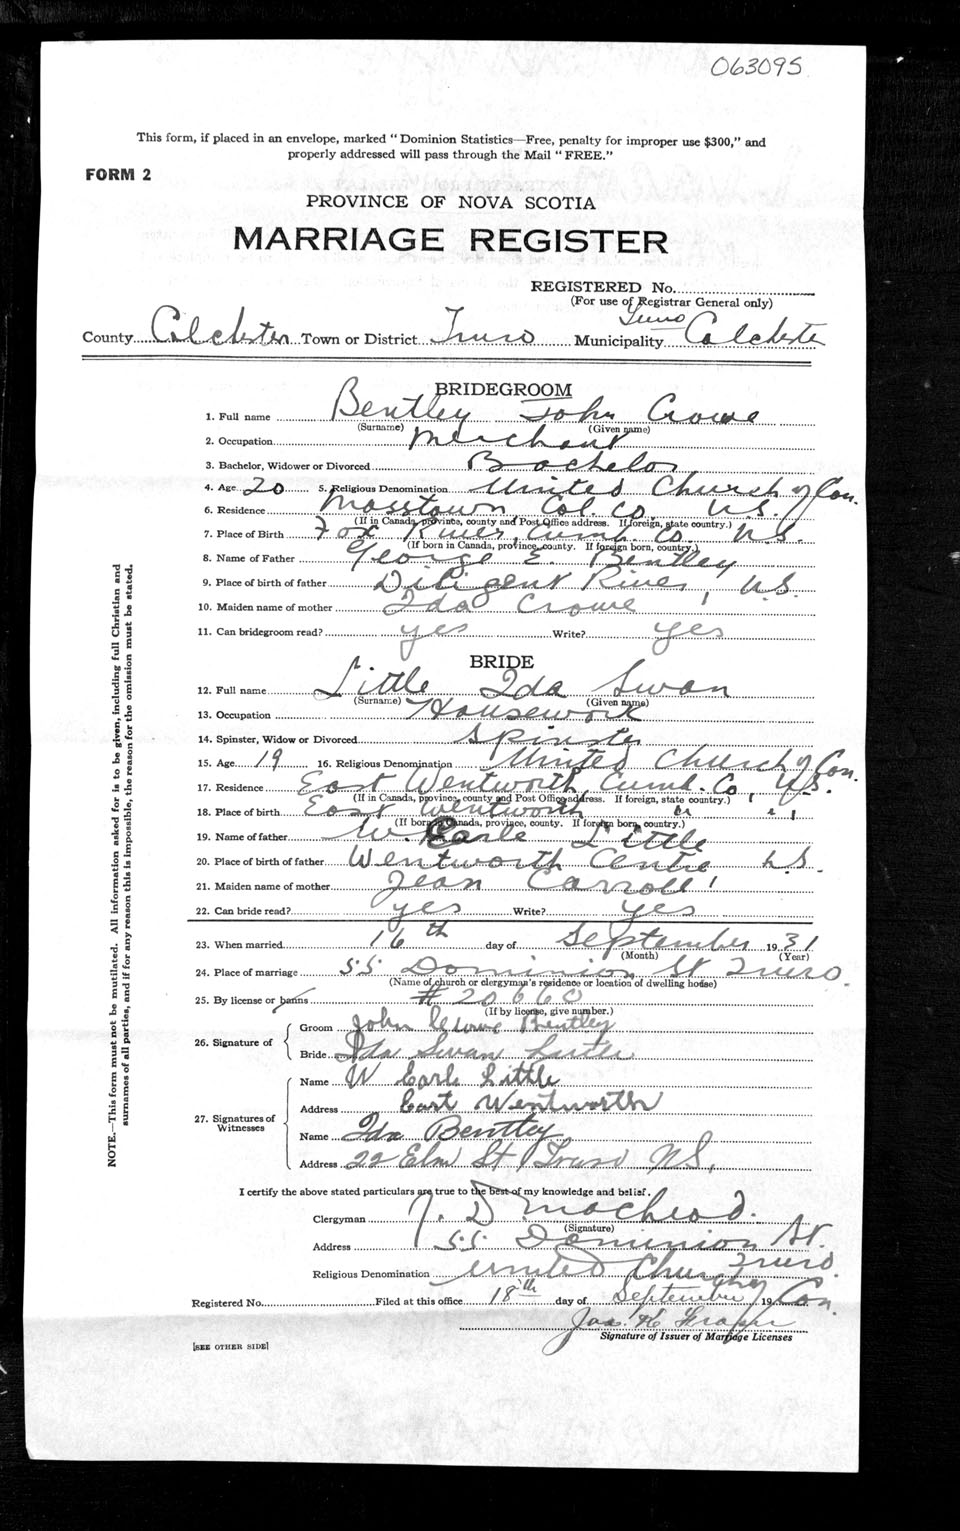 063095
This form, if placed in an envelope, marked "Dominion Statistics—Free, penalty for improper use $300," and
properly addressed will pass through the Mail "FREE."
FORM 2
PROVINCE OF NOVA SCOTIA
MARRIAGE REGISTER
REGISTERED No.
(For use of Registrar General only)
Truro
County Colchester Town or District Truro Municipality Colchester
BRIDEGROOM
1. Full name Bentley John Crowe
(Surname) (Given name)
2. Occupation Merchant
3. Bachelor, Widower or Divorced Bachelor
4. Age 20 5. Religious Denomination United Church of Can.
6. Residence Masstown, Col. Co. N.S.
(If in Canada, province, county and Post Office address. If foreign, state country.)
7. Place of Birth Fox River, Cumb. Co. N.S.
(If born in Canada, province, county. If foreign born, country.)
8. Name of Father George E. Bentley
9. Place of birth of father Diligent River, N.S.
10. Maiden name of mother Ida Crowe
11. Can bridegroom read? yes Write? yes
BRIDE
12. Full name Little Ida Swan
(Surname) (Given name)
13. Occupation Housework
14. Spinster, Widow or Divorced Spinster
15. Age 19 16. Religious Denomination United Church of Can.
17. Residence East Wentworth, Cumb. Co, N.S.
(If in Canada, province, county and Post Office address. If foreign, state country.)
18. Place of birth East Wentworth " " "
(If born in Canada, province, county. If foreign born, country.)
19. Name of father W. Earle Little
20. Place of birth of father Wentworth Centre N.S.
21. Maiden name of mother Jean Carroll
22. Can bride read? yes Write? yes
23. When married 16th day of September 1931
(Month) (Year)
24. Place of marriage 55 Dominion St Truro
(Name of church or clergyman's residence or location of dwelling house)
25. By license or banns # 20660
(If by license, give number.)
26. Signature of
Groom John Crowe Bentley
Bride Ida Swan Little
27. Signatures of Witnesses
Name W Earle Little
Address East Wentworth
Name Ida Bentley
Address 22 Elm St Truro N.S.
I certify the above stated particulars are true to the best of my knowledge and belief.
Clergyman D. MacLeod.
(Signature)
Address 55 Dominion St.
Truro
Religious Denomination United Church of Can.
Registered No. Filed at this office 18th day of September 19
Jas. Fraser
Signature of Issuer of Marriage Licenses
[SEE OTHER SIDE]
NOTE.—This form must not be mutilated. All information asked for is to be given, including full Christian and
surnames of all parties, and if for any reason this is impossible, the reason for the omission must be stated.